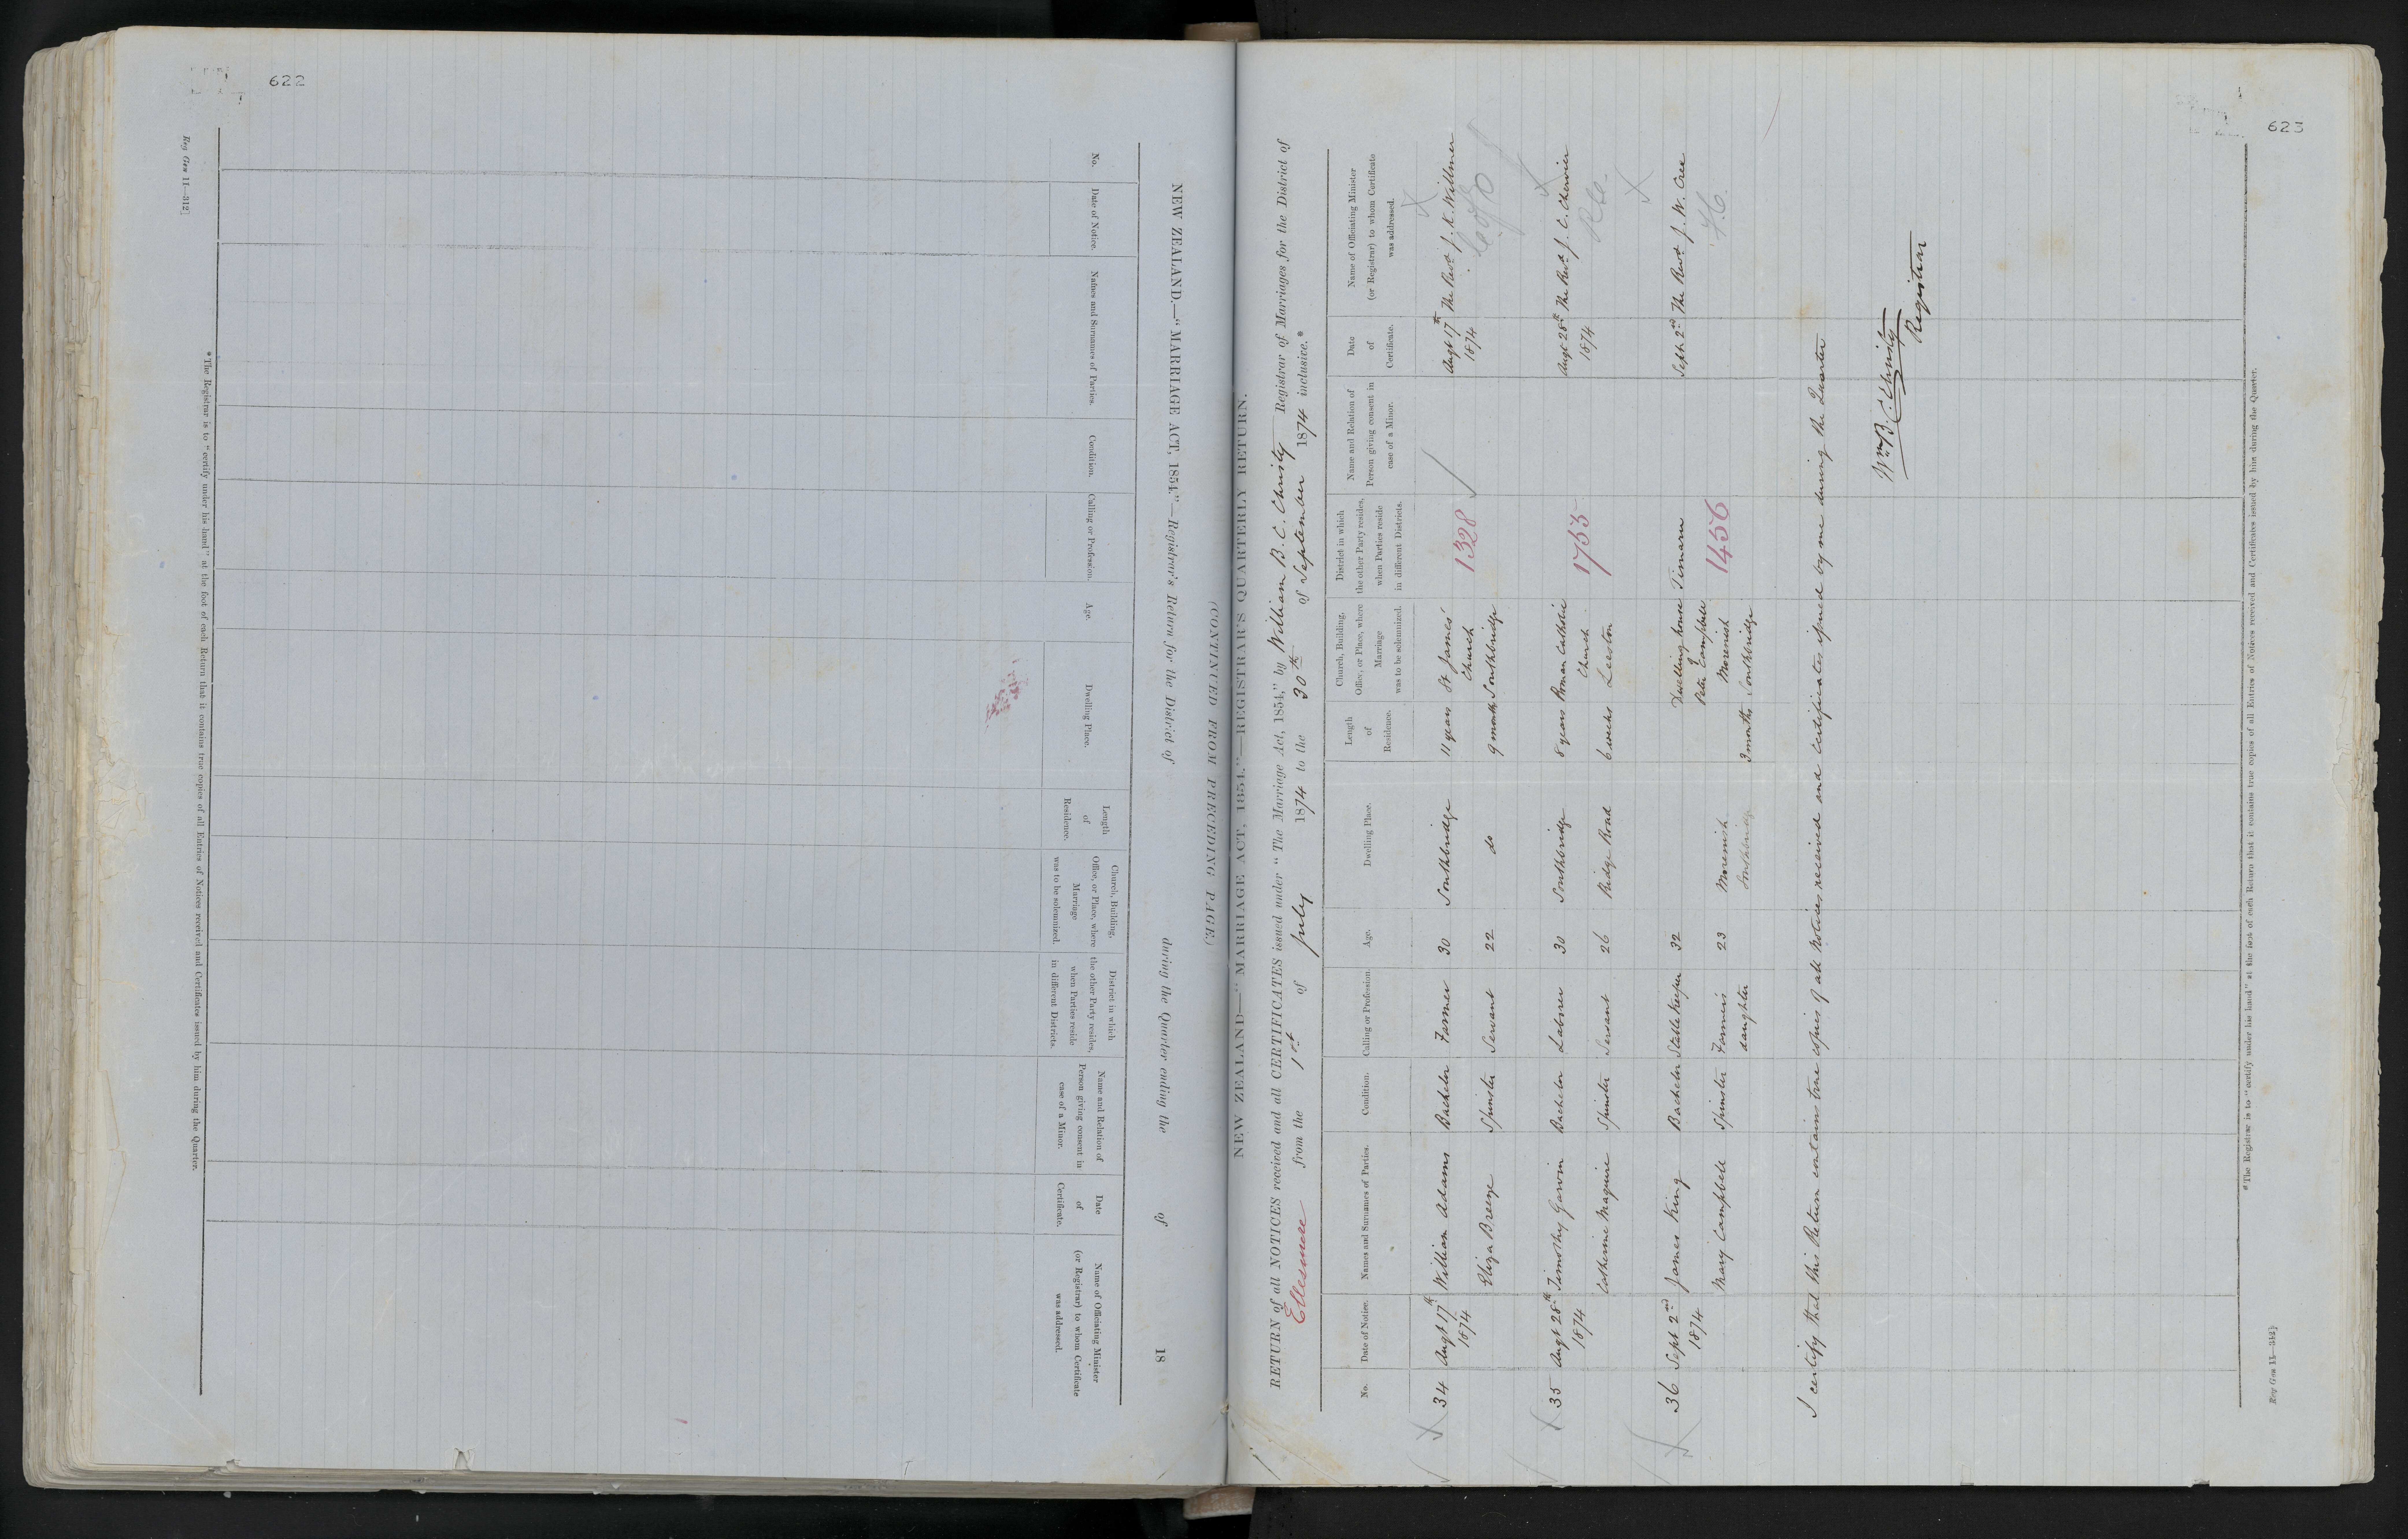 622
Reg Gen 11—312]
NEW ZEALAND.—"MARRIAGE ACT, 1854."—Registrar's Return for the District of during the Quarter ending the of 18
(CONTINUED FROM PRECEDING PAGE.)
No.
Date of Notice.
Names and Surnames of Parties.
Condition.
Calling or Profession.
Age.
Dwelling Place.
Length of Residence.
Church, Building, Office, or Place, where Marriage was to be solemnized.
District in which the other Party resides, when Parties reside in different Districts.
Name and Relation of Person giving consent in case of a Minor.
Date of Certificate.
Name of Officiating Minister (or Registrar) to whom Certificate was addressed.
*The Registrar is to "certify under his hand" at the foot of each Return that it contains true copies of all Entries of Notices received and Certificates issued by him during the Quarter.
623
NEW ZEALAND—"MARRIAGE ACT, 1854."—REGISTRAR'S QUARTERLY RETURN.
RETURN of all NOTICES received and all CERTIFICATES issued under "The Marriage Act, 1854," by William B. C. Christy Registrar of Marriages for the District of
Ellesmere from the 1st of July 1874 to the 30th of September 1874 inclusive.*
No.
Date of Notice.
Names and Surnames of Parties.
Condition.
Calling or Profession.
Age.
Dwelling Place.
Length of Residence.
Church, Building, Office, or Place, where Marriage was to be solemnized.
District in which the other Party resides, when Parties reside in different Districts.
Name and Relation of Person giving consent in case of a Minor.
Date of Certificate.
Name of Officiating Minister (or Registrar) to whom Certificate was addressed.
34 Augt 17th William Adams Bachelor Farmer 30 Southbridge 11 years St James' Augt 17th The Revd J. K. Willmer
1874 Church 1328 1874 C of E
Eliza Breeze Spinster Servant 22 do 9 months Southbridge
35 Augt 28th Timothy Garvin Bachelor Labourer 30 Southbridge 8 years Roman Catholic Augt 28th The Revd J. C. Chervier
1874 Church 1755 1874 R.C.
Catherine Maguire Spinster Servant 26 Ridge Road 6 weeks Leeston
36 Sept 2nd James King Bachelor Stable Keeper 32 Dwelling house Timaru Sept. 2nd The Revd J. W. Cree
1874 of Peter Campbell
Mary Campbell Spinster Farmer's 23 Morenish Morenish 1456
daughter Southbridge 3 months Southbridge
I certify that this Return contains true copies of all Notices received and Certificates issued by me during the Quarter
Wm B. C. Christy
Registrar
*The Registrar is to "certify under his hand" at the foot of each Return that it contains true copies of all Entries of Notices received and Certificates issued by him during the Quarter.
Reg Gen 11—312]